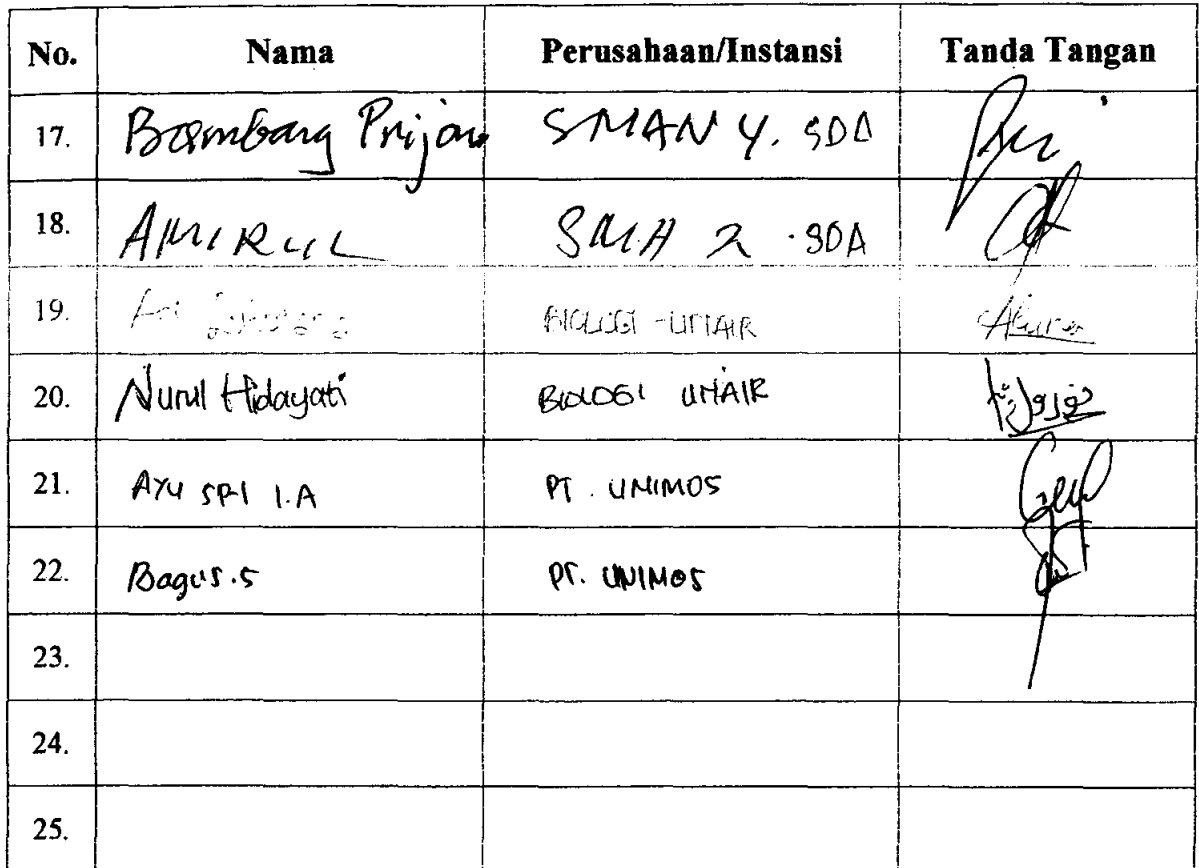 No. Nama Perusahaan/Instansi Tanda Tangan
17. Bambang Prijono SMAN 4. SDA
18. AMIRUL SMA 2 .SDA
19. BIOLOGI - UNAIR
20. Nurul Hidayati BIOLOGI UNAIR
21. AYU SRI I.A PT. UNIMOS
22. Bagus.S PT. UNIMOS
23.
24.
25.